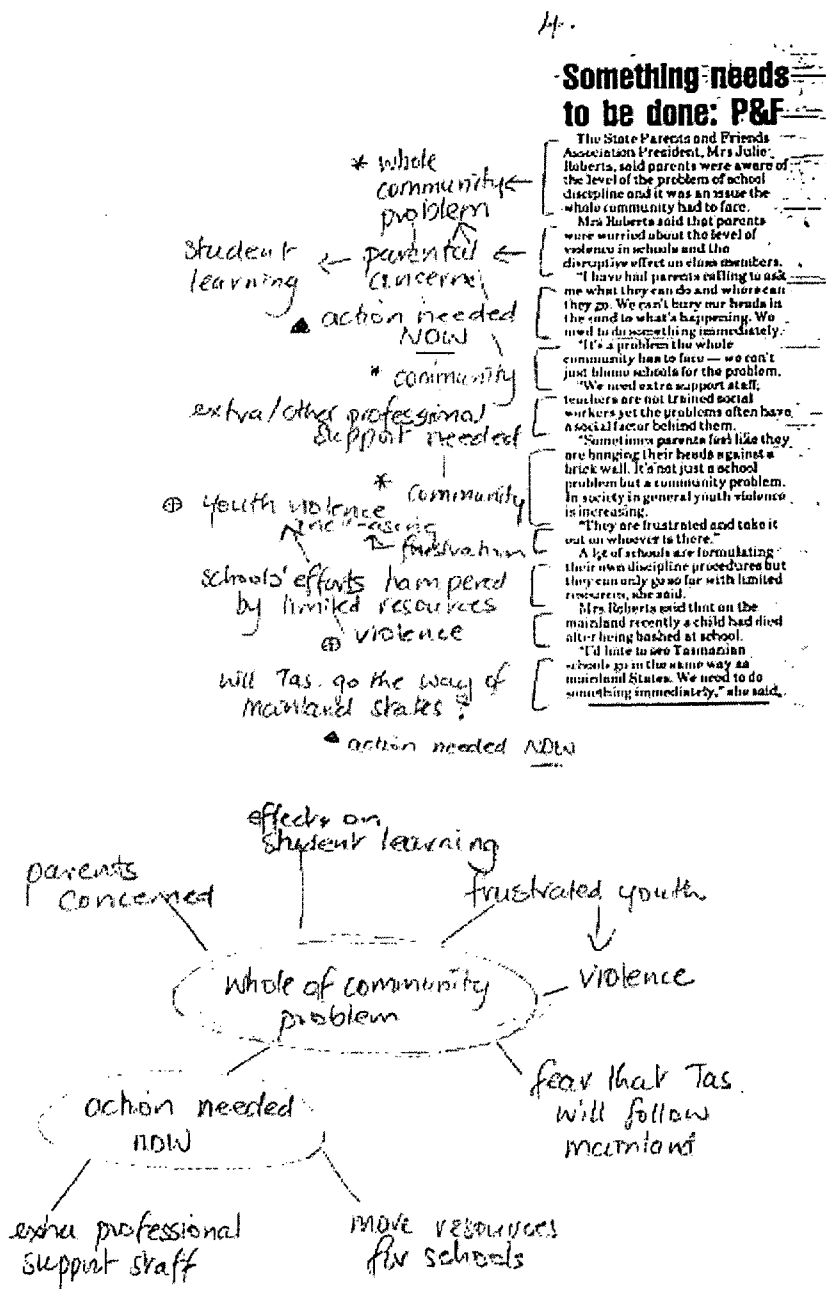 4.
Something needs
to be done: P&F
The State Parents and Friends
Association President, Mrs Julie
Roberts, said parents were aware of
the level of the problem of school
discipline and it was an issue the
whole community had to face.
Mrs Roberts said that parents
were worried about the level of
violence in schools and the
disruptive effect on class members.
"I have had parents calling to ask
me what they can do and where can
they go. We can't bury our heads in
the sand to what's happening. We
need to do something immediately.
"It's a problem the whole
community has to face — we can't
just blame schools for the problem.
"We need extra support staff;
teachers are not trained social
workers yet the problems often have
a social factor behind them.
"Sometimes parents feel like they
are banging their heads against a
brick wall. It's not just a school
problem but a community problem.
In society in general youth violence
is increasing.
"They are frustrated and take it
out on whoever is there."
A lot of schools are formulating
their own discipline procedures but
they can only go so far with limited
resources, she said.
Mrs Roberts said that on the
mainland recently a child had died
after being bashed at school.
"I'd hate to see Tasmanian
schools go in the same way as
mainland States. We need to do
something immediately," she said.
* whole
community
problem
student
learning
parental
concern
▲ action needed
NOW
* community
extra/other professional
support needed
* community
⊕ youth violence
increasing
frustration
schools' efforts hampered
by limited resources
⊕ violence
will Tas. go the way of
mainland states?
▲ action needed NOW
effects on
student learning
parents
concerned
frustrated youth
whole of community
problem
violence
fear that Tas.
will follow
mainland
action needed
now
extra professional
support staff
more resources
for schools